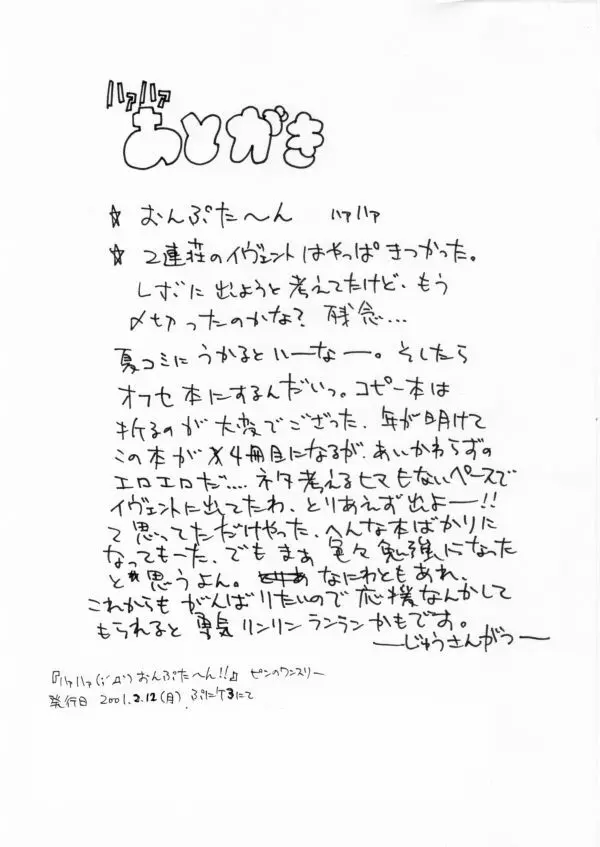 ハァハァ
あとがき
☆ おんぷた〜ん ハァハァ
☆ 2連荘のイヴェントはやっぱきつかった。
しずに出ようと考えてたけど、もう
〆切ったのかな？ 残念…
夏コミにうかるといーなー。そしたら
オフセ本にするんだいっ。コピー本は
折るのが大変でござった、年が明けて
この本が4冊目になるが、あいかわらずの
エロエロだ…. ネタ考えるヒマもないペースで
イヴェントに出てたわ、とりあえず出よー!!
て思ってただけやった、へんな本ばかりに
なってもーた、でもまぁ色々勉強になった
と思うよん。なにわともあれ、
これからもがんばりたいので応援なんかして
もられると勇気リンリンランランかもです。
―じゅうさんがつ―
『ハァハァ(;´Д`)おんぷた〜ん!!』 ピンのワンスリー
発行日 2001.2.12(月) ぷにケ3にて